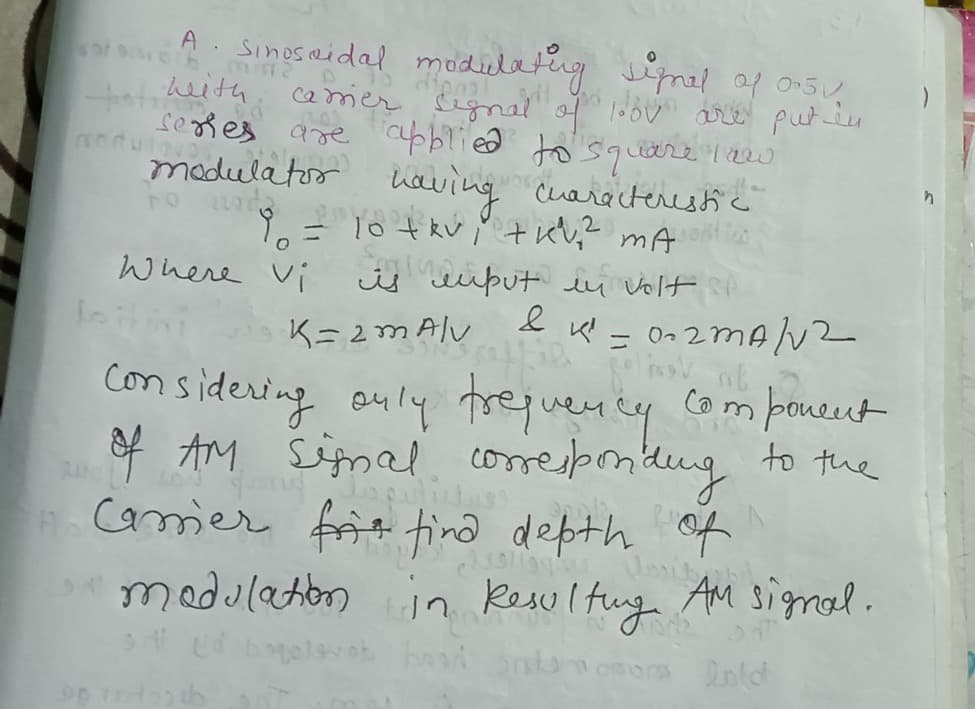 A. sinosoidal modulating signal of 0.5V
with carrier signal of 1.0V are put in
series are applied to square law
modulator having characteristic
i₀ = 10 + kvi + k'vi² mA
Where vi is input in volt
K = 2mA/v & k' = 0.2mA/v2
Considering only frequency component
of AM signal corresponding to the
Carrier find depth of
modulation in Resulting AM signal.